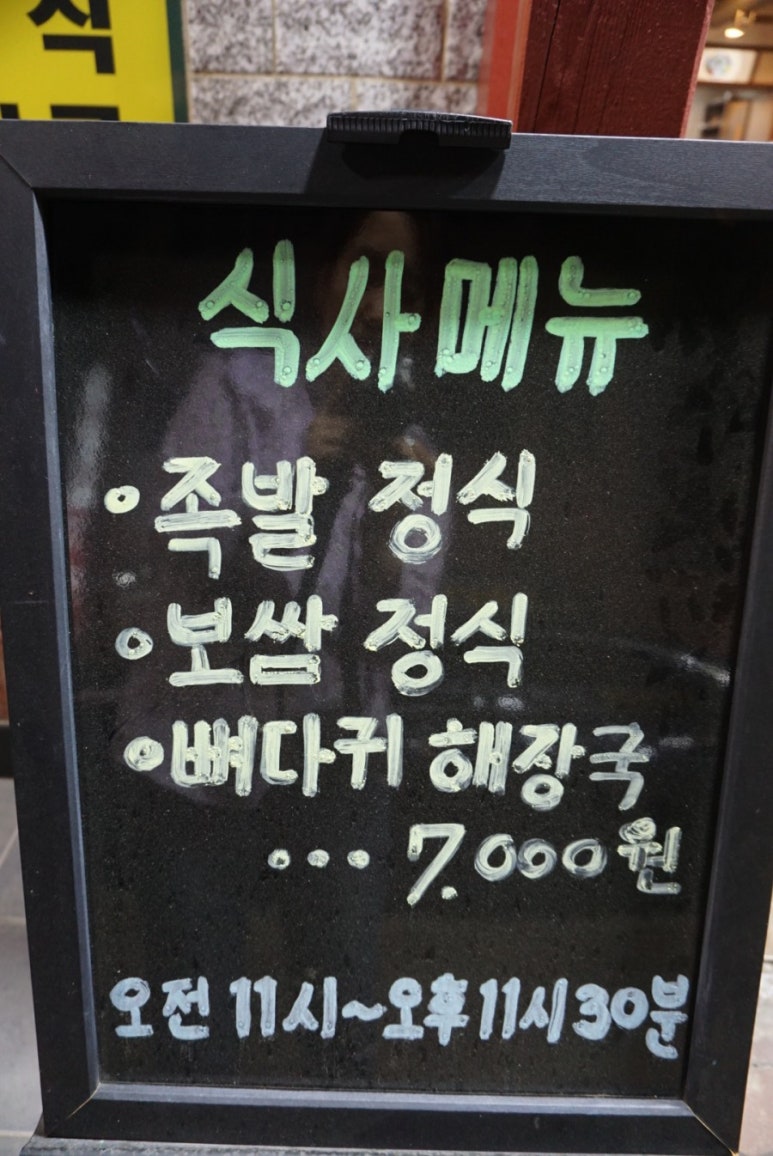 식
식사메뉴
•족발 정식
•보쌈 정식
•뼈다귀 해장국
… 7.000원
오전 11시~오후11시30분